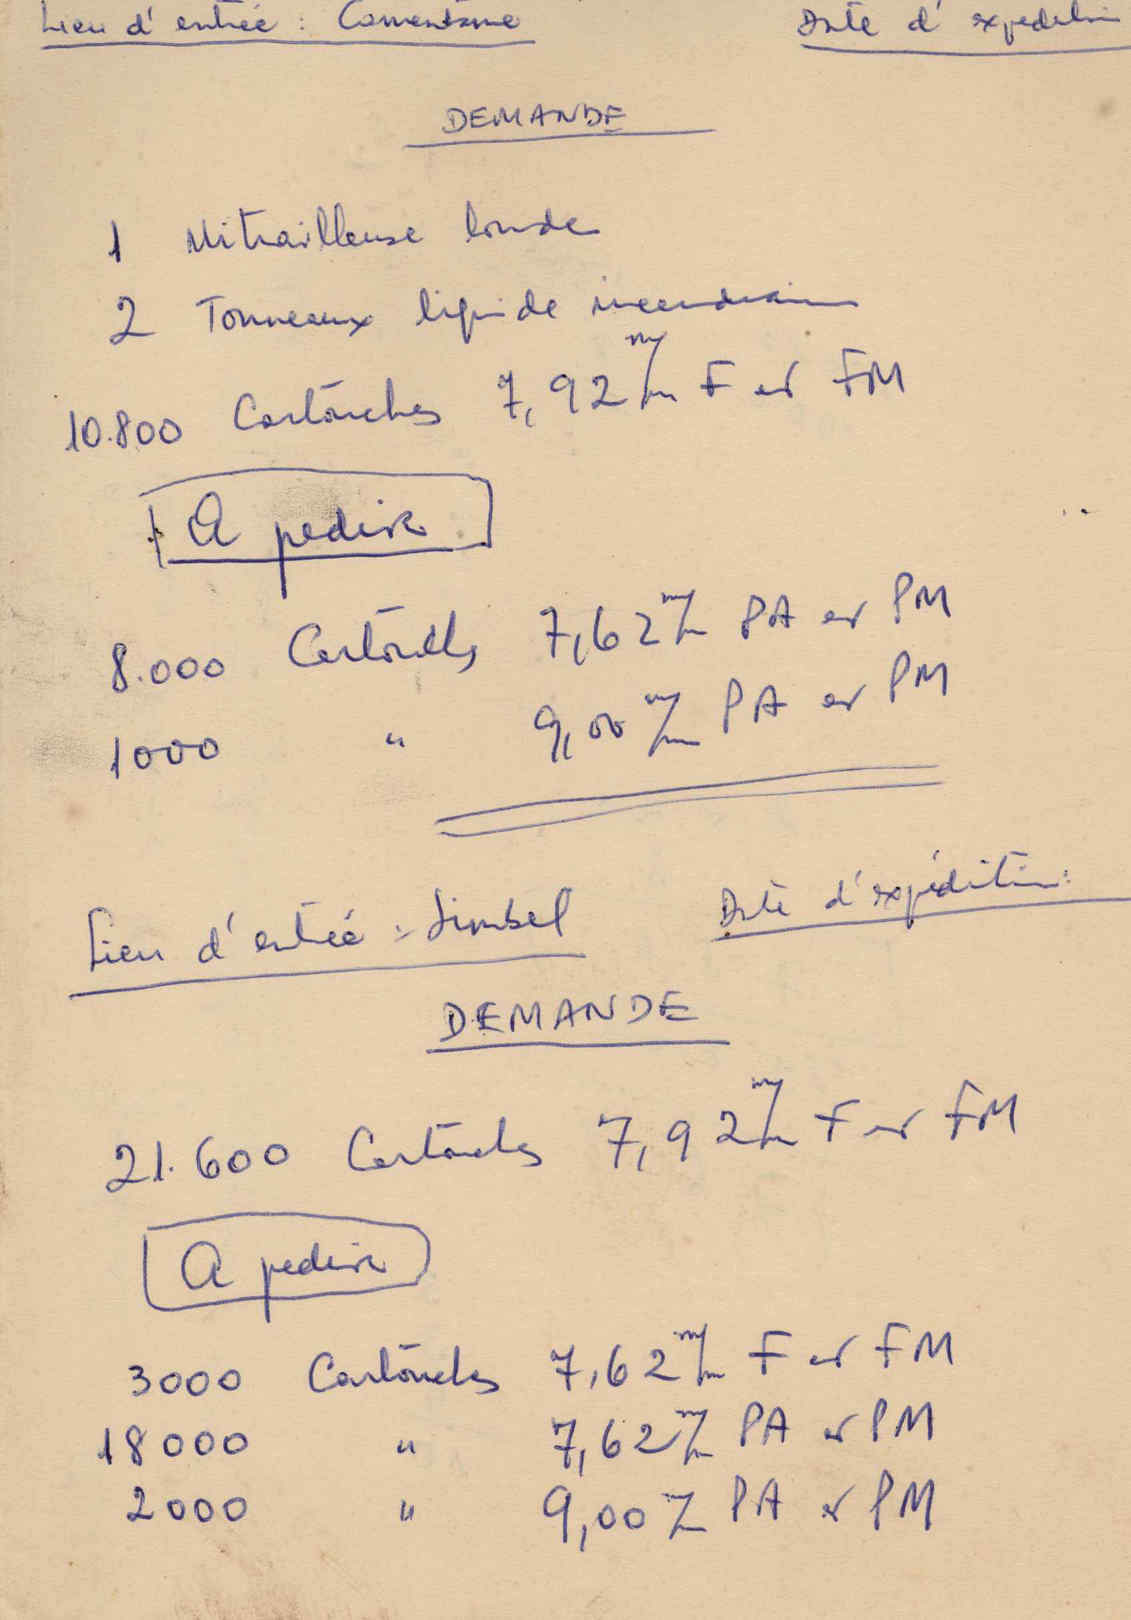 Lieu d'entrée : Date d'expédition
DEMANDE
1 Mitrailleuse lourde
2 Tonneaux liquide incendiaire
10.800 Cartouches 7,92 m/m F et FM
A pedir
8.000 Cartouches 7,62 m/m PA et PM
1000 " 9,00 m/m PA et PM
Lieu d'entrée : Simbel Date d'expédition :
DEMANDE
21.600 Cartouches 7,92 m/m F et FM
A pedir
3000 Cartouches 7,62 m/m F et FM
18000 " 7,62 m/m PA et PM
2000 " 9,00 m/m PA et PM